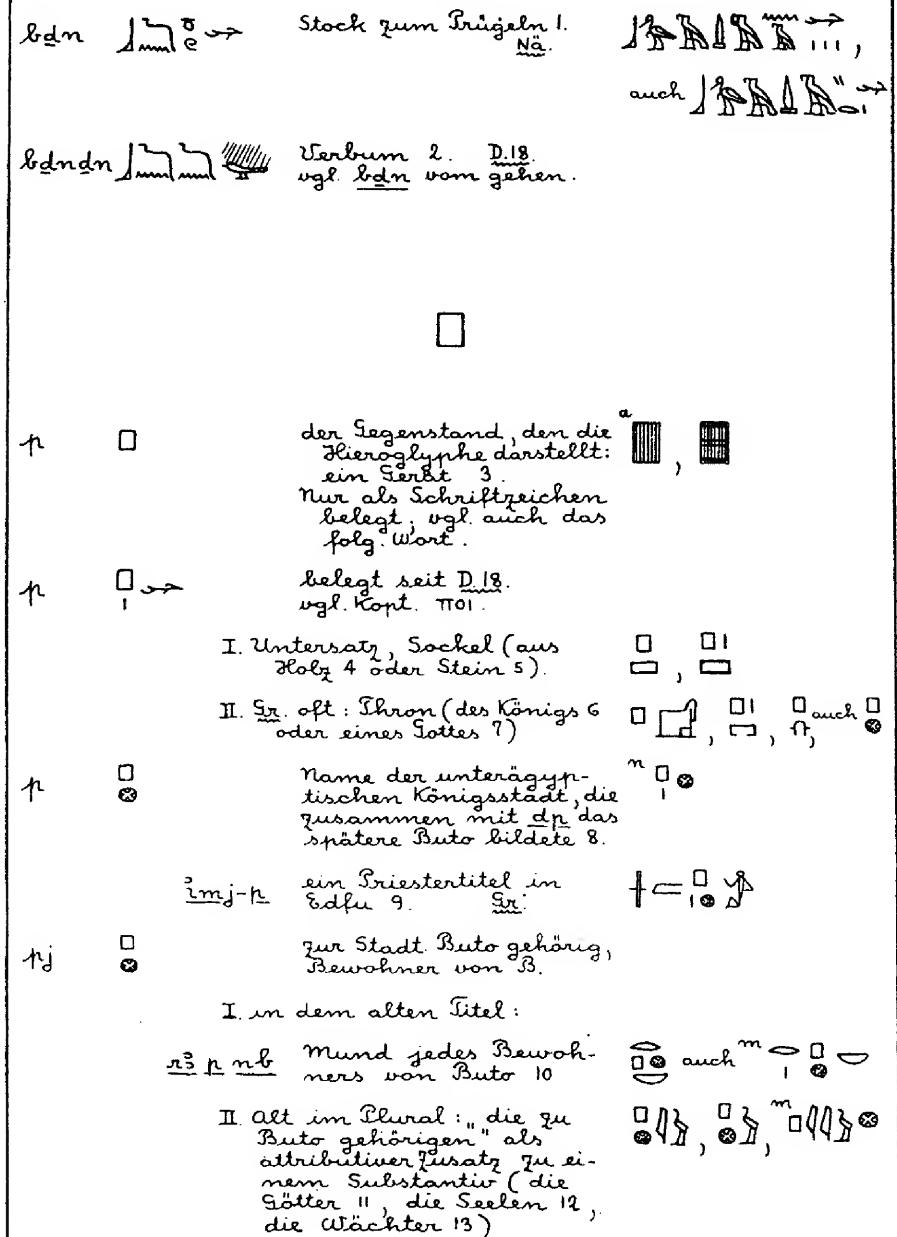 bḏn Stock zum Prügeln 1.
Nä.
auch
bḏnḏn Verbum 2. D.18.
vgl. bḏn vom gehen.
p der Gegenstand, den die
Hieroglyphe darstellt:
ein Gerät 3.
Nur als Schriftzeichen
belegt; vgl. auch das
folg. Wort.
a
p belegt seit D.18.
vgl. Kopt. ⲡⲟⲓ.
I. Untersatz, Sockel (aus
Holz 4 oder Stein 5).
II. Gr. oft: Thron (des Königs 6
oder eines Gottes 7)
auch
p Name der unterägyp-
tischen Königsstadt, die
zusammen mit dp das
spätere Buto bildete 8.
n
ỉmj-p ein Priestertitel in
Edfu 9. Gr.
pj zur Stadt Buto gehörig,
Bewohner von B.
I. in dem alten Titel:
rꜣ p nb Mund jedes Bewoh-
ners von Buto 10
auch m
II. Alt im Plural: „die zu
Buto gehörigen" als
attributiver Zusatz zu ei-
nem Substantiv (die
Götter 11, die Seelen 12,
die Wächter 13)
m